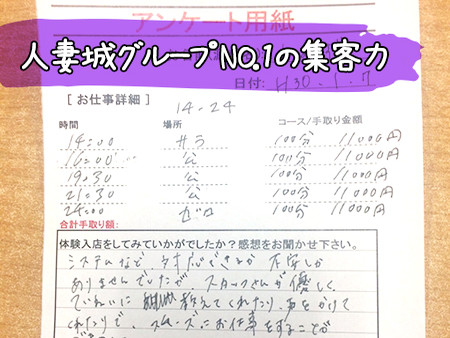 アンケート用紙
人妻城グループNO.1の集客力
日付: H30.1.7
[お仕事詳細] 14-24
時間 場所 コース/手取り金額
14:00 サラ 100分 11000円
16:00 公 100分 11000円
19:30 公 100分 11000円
21:30 公 100分 11000円
24:00 ゼロ 100分 11000円
合計手取り額:
体験入店をしてみていかがでしたか?感想をお聞かせ下さい。
システムなど対応できるか不安しか
ありませんでしたが、スタッフさんが優しく
ていねいに 教えてくれたり、声をかけて
くれたりで、スムーズにお仕事をすることが